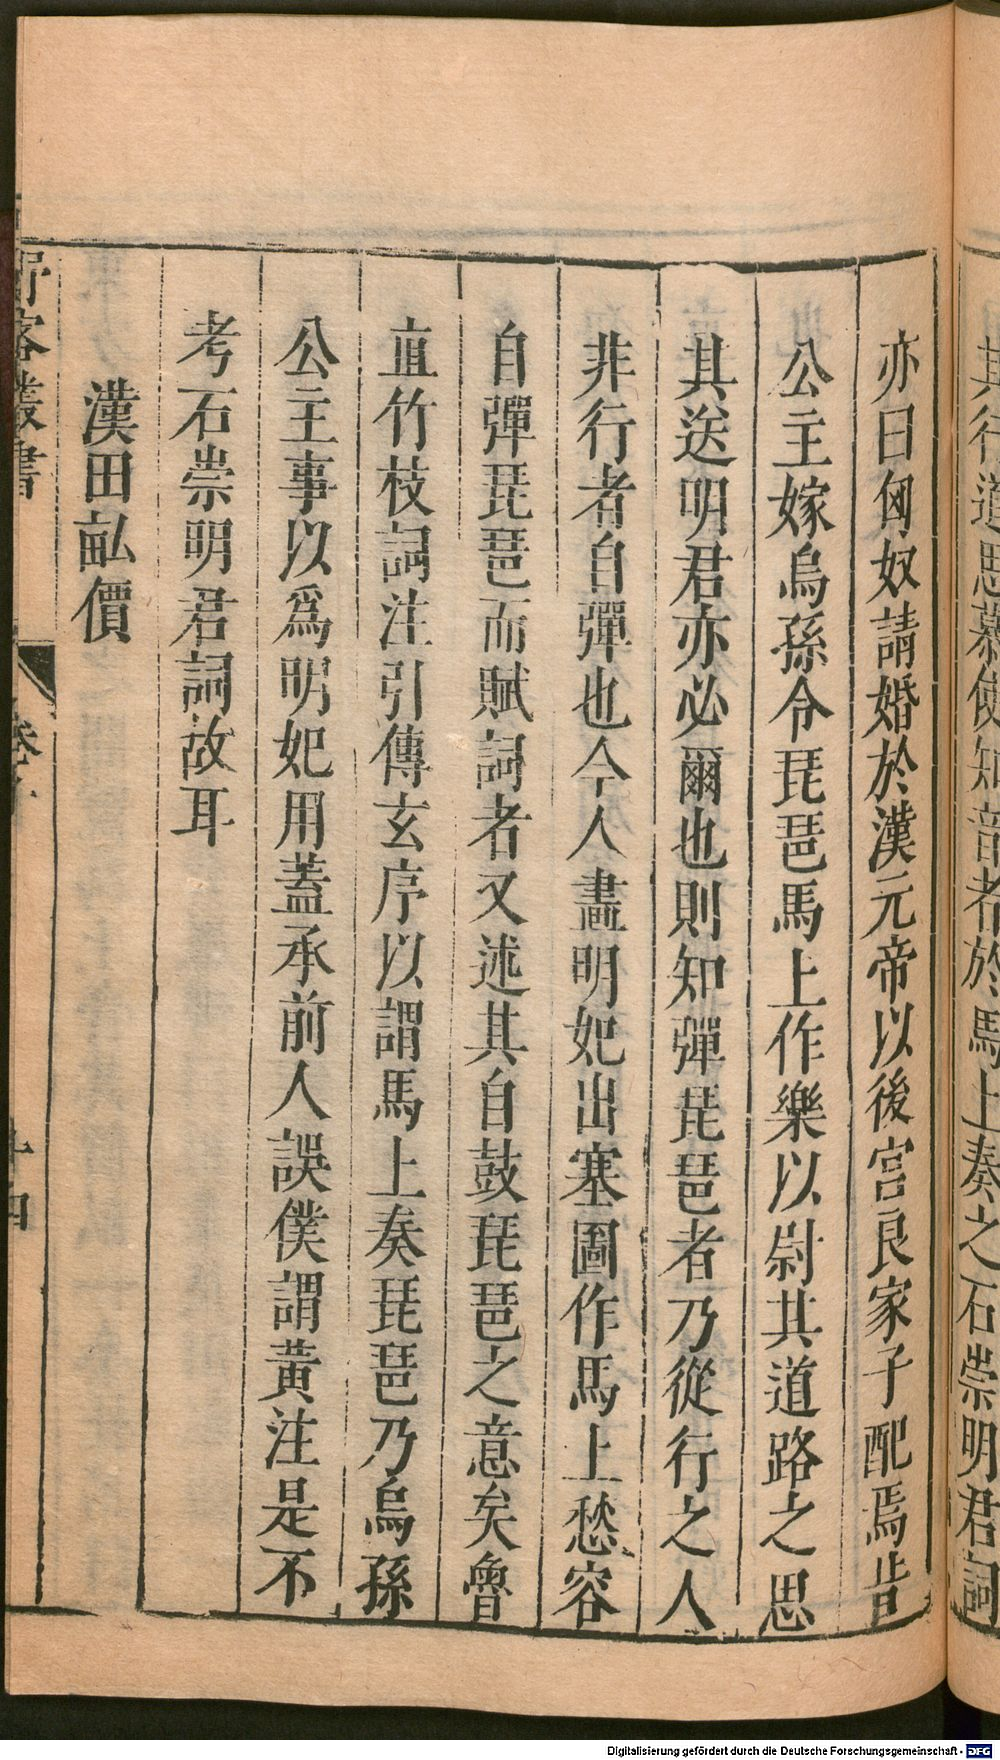 其行道思慕使知音者於馬上奏之石崇明君詞
亦曰匈奴請婚於漢元帝以後宮良家子配焉昔
公主嫁烏孫令琵琶馬上作樂以尉其道路之思
其送明君亦必爾也則知彈琵琶者乃從行之人
非行者自彈也今人畫明妃出塞圖作馬上愁容
自彈琵琶而賦詞者又述其自鼓琵琶之意矣魯
直竹枝詞注引傅玄序以謂馬上奏琵琶乃烏孫
公主事以為明妃用蓋承前人誤僕謂黃注是不
考石崇明君詞故耳
漢田畝價
野客叢書
卷
十四
Digitalisierung gefördert durch die Deutsche Forschungsgemeinschaft - DFG